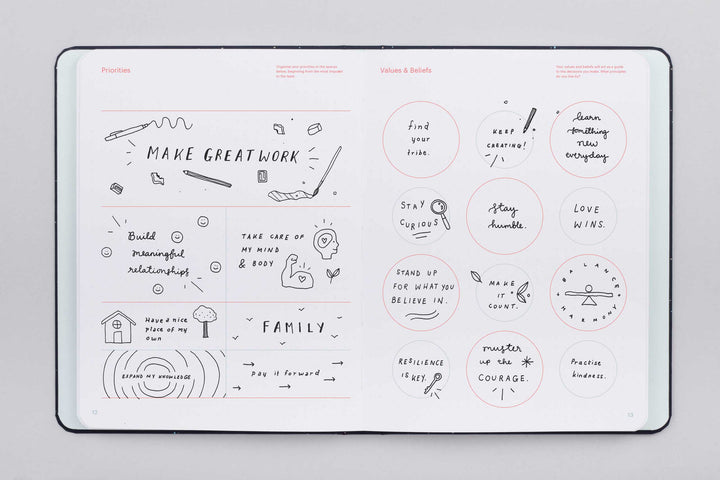 Priorities
Organise your priorities in the spaces
below, beginning from the most important
to the least.
MAKE GREAT WORK
Build
meaningful
relationships
TAKE CARE OF
MY MIND
& BODY
Have a nice
place of my
own
FAMILY
EXPAND MY KNOWLEDGE
Pay it forward
12
Values & Beliefs
Your values and beliefs will act as a guide
to the decisions you make. What principles
do you live by?
find
your
tribe.
KEEP
CREATING!
learn
something
new
everyday
STAY
CURIOUS
Stay
humble.
LOVE
WINS.
STAND UP
FOR WHAT YOU
BELIEVE IN.
MAKE
IT
COUNT.
BALANCE
HARMONY
RESILIENCE
IS KEY.
muster
up the
COURAGE.
Practise
kindness.
13